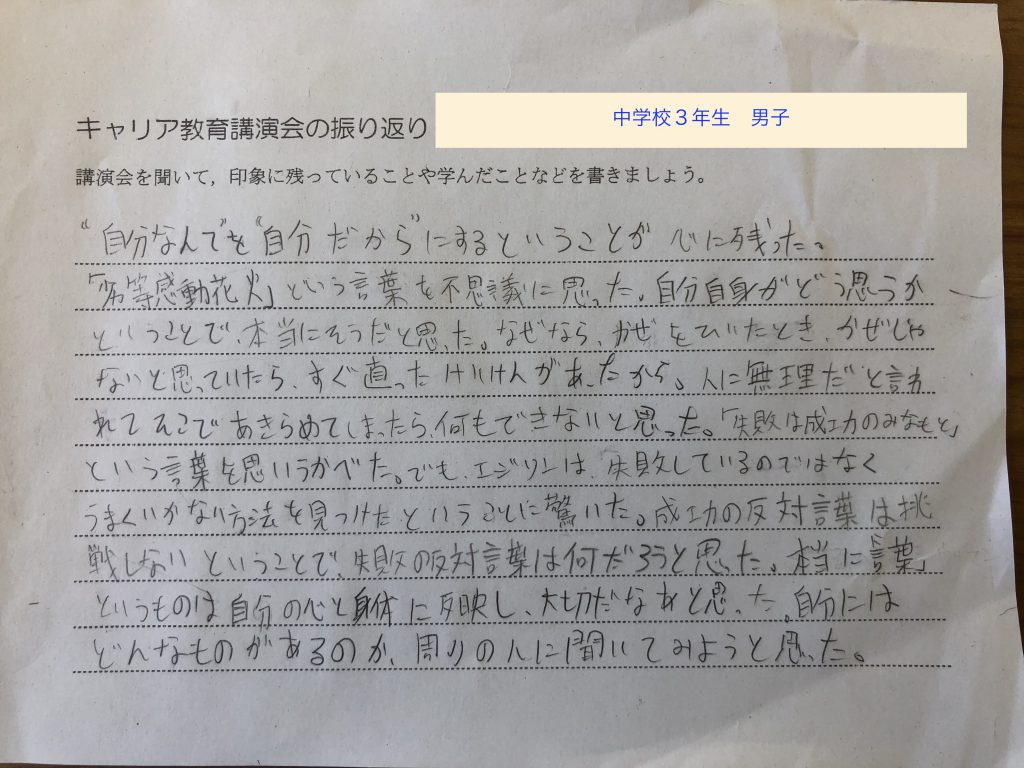 キャリア教育講演会の振り返り
中学校3年生 男子
講演会を聞いて，印象に残っていることや学んだことなどを書きましょう。
“自分なんで”を“自分だから”にするということが心に残った。
「劣等感動花火」という言葉を不思議に思った。自分自身がどう思うか
ということで、本当にそうだと思った。なぜなら、かぜをひいたとき、かぜじゃ
ないと思っていたら、すぐ直ったけいけんがあったから。人に無理だと言わ
れてそこであきらめてしまったら、何もできないと思った。「失敗は成功のみなもと」
という言葉を思いうかべた。でも、エジソンは、失敗しているのではなく
うまくいかない方法を見つけたということに驚いた。成功の反対言葉は挑
戦しないということで、失敗の反対言葉は何だろうと思った。本当に「言葉」
というものは自分の心と身体に反映し、大切だなあと思った。自分には
どんなものがあるのか、周りの人に聞いてみようと思った。